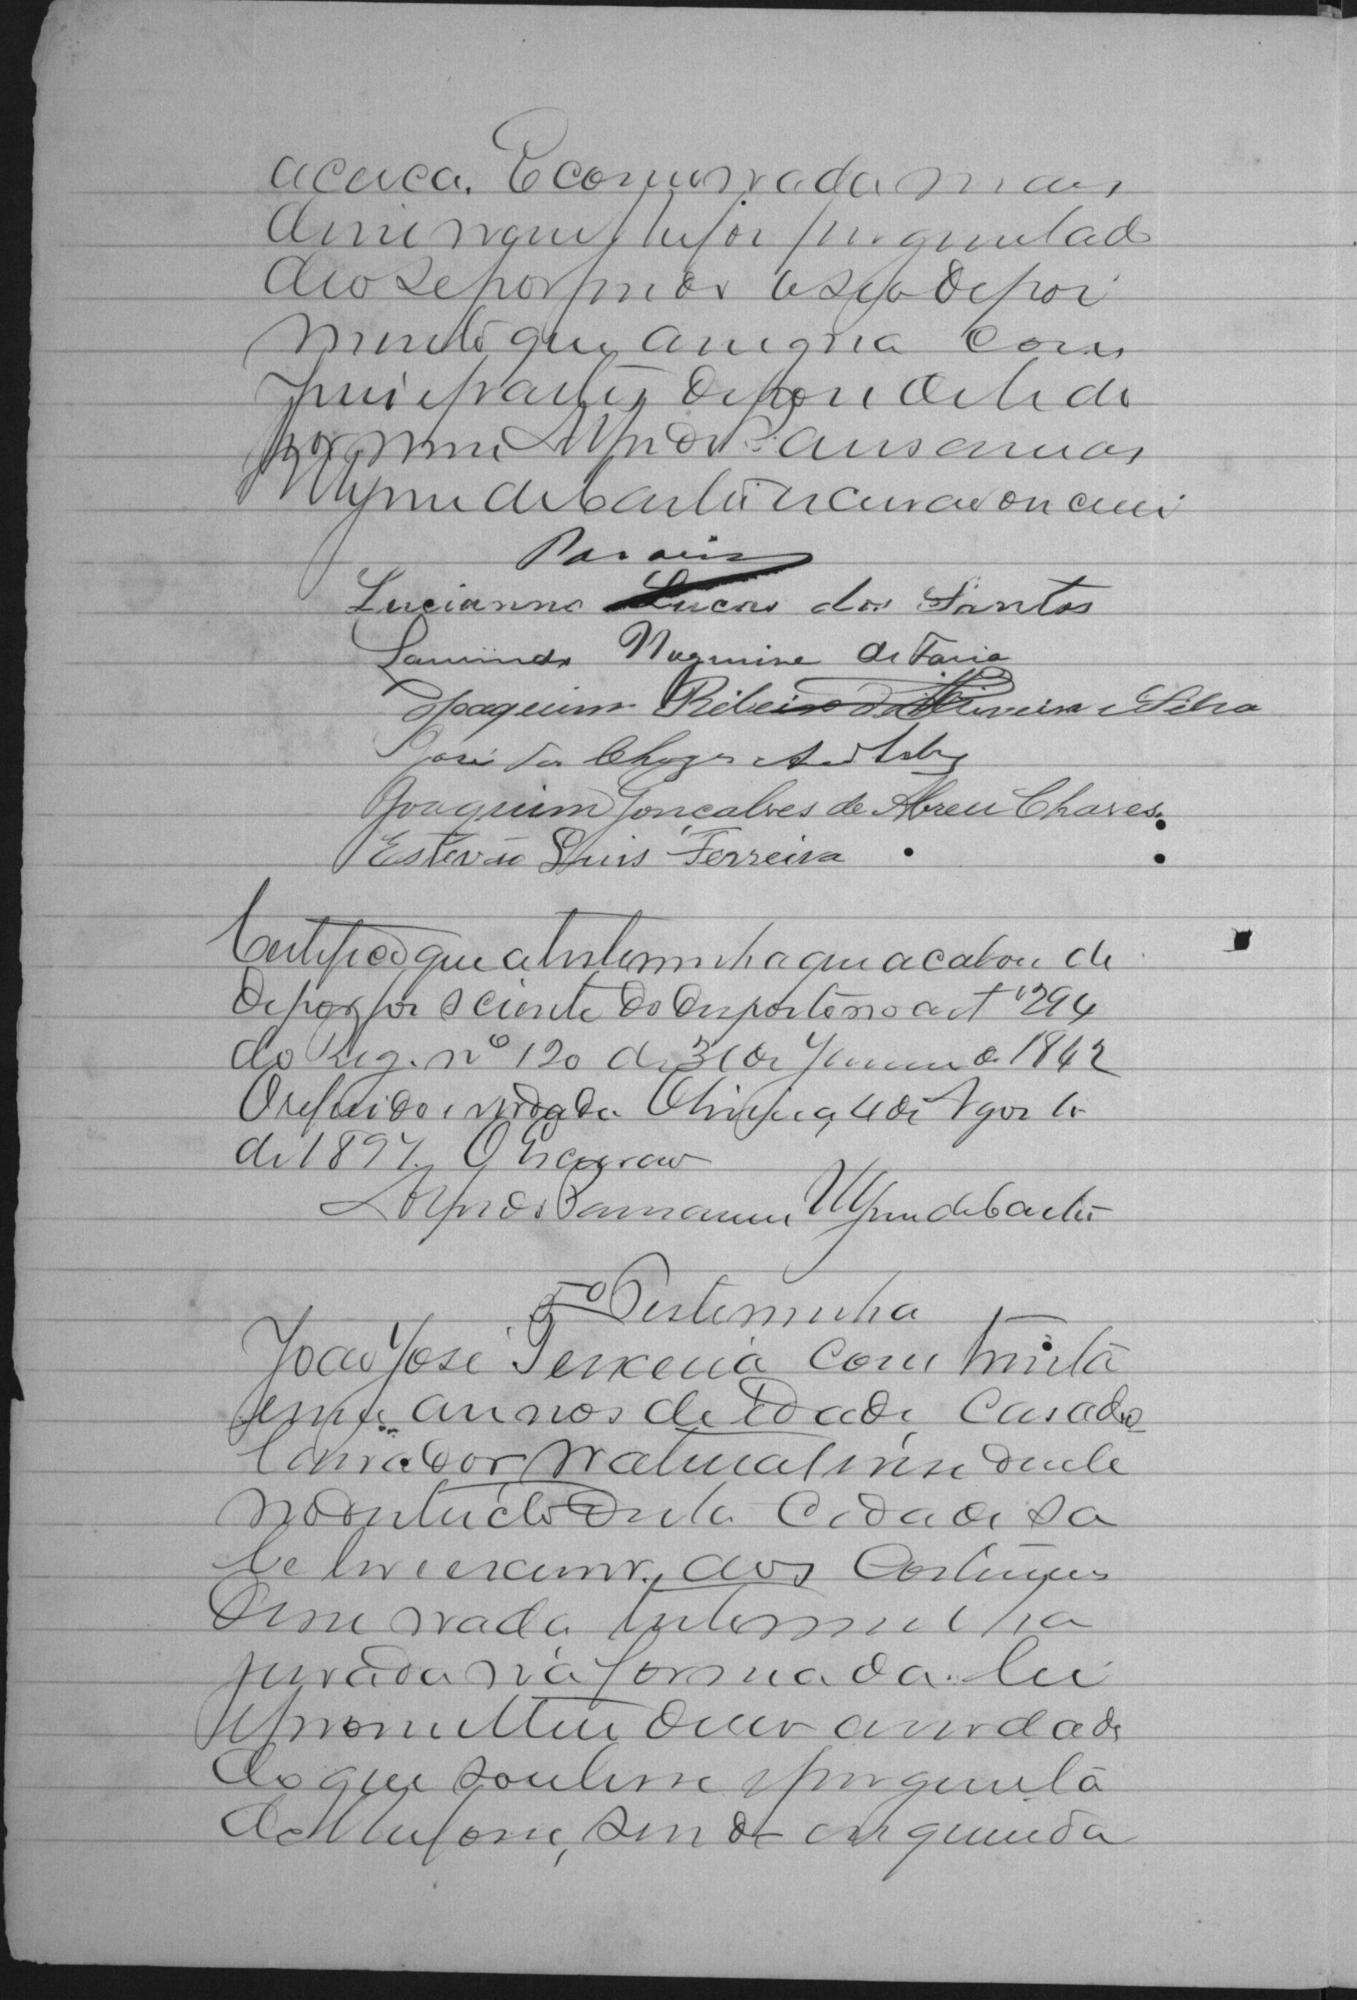 acerca. E como nada mais
disse nem lhe foi perguntado
deo se por findo este depoi
mento que assigna com
Juiz e partes depois de lido
por mim
de Castro escrivão escrevi
Paraiso
Lucianno Lucas dos Santos
de Faria
Joaquim Ribeiro de Oliveira e Silva
José das Chagas
Joaquim Gonçalves de Abreu Chaves
Estevão Luis Ferreira
Certifico que a testemunha que acabou de
depor foi sciente do disposto no art 294
do Reg. nº 120 de 31 de Janeiro de 1842
O referido é verdade. 4 de Agosto
de 1897. O Escrivão
de Castro
5ª Testemunha
João José Teixeira com trinta
e um annos de edade, casado
lavrador, natural e residente
no districto desta cidade, sa
be ler e escrever, aos costumes
disse nada, testemunha
jurada na forma da lei
e prometteu dizer a verdade
do que soubesse e pergunta
do lhe fosse, sendo inquirida